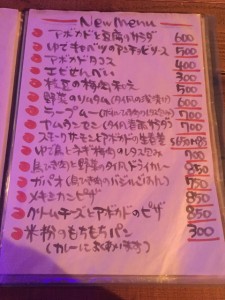 New Menu
アボカドと豆腐のサラダ 600
ゆでキャベツのアンチョビソース 500
アボカドタコス 400
エビせんべい 300
枝豆の梅肉和え 500
野菜の 600
ラープムー 700
ヤムウンセン(タイの春雨サラダ) 700
スモークサーモンとアボカドの生春巻
ゆで豚と 和のレタス包み 700
鳥ひき肉と野菜のタイ風ドライカレー 850
ガパオ(鳥ひき肉のバジルごはん) 750
メキシカンピザ 850
クリームチーズとアボカドのピザ 850
米粉のもちもちパン 300
(カレーに